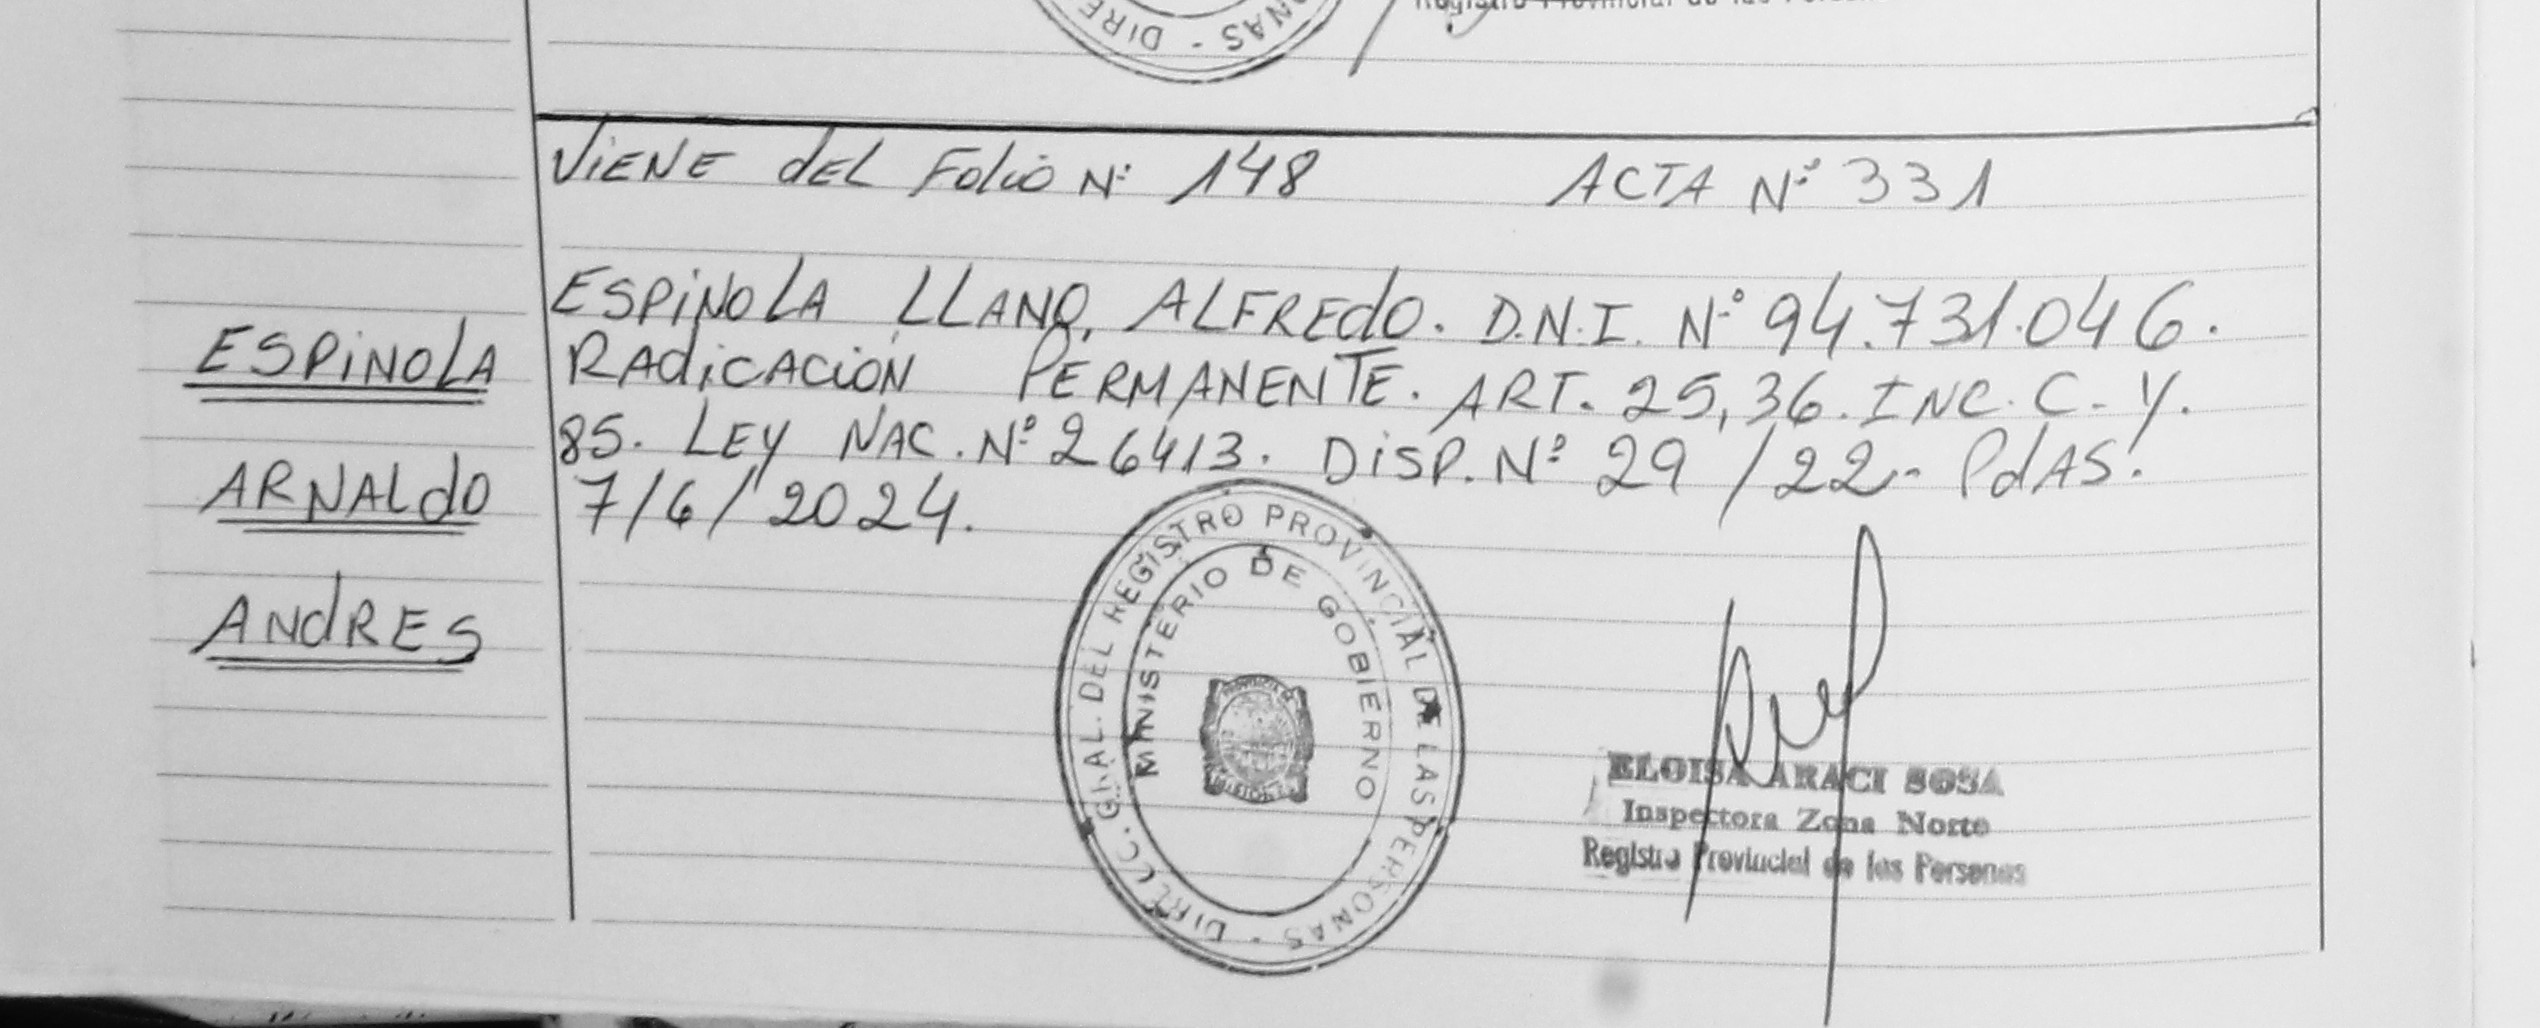 DIRE
NAS - DIRE
VIENE DEL FOLIO Nº 148 ACTA Nº 331
ESPINOLA LLANO, ALFREDO. D.N.I. Nº 94.731.046.
RADICACIÓN PERMANENTE. ART. 25,36. INC. C. Y.
85. LEY NAC. Nº 26413. DISP. Nº 29/22- PDAS.
7/6/2024.
ESPINOLA
ARNALDO
ANDRES
DIRECC. GRAL. DEL REGISTRO PROVINCIAL DE LAS PERSONAS -
MINISTERIO DE GOBIERNO
ELOISA ARACI SOSA
Inspectora Zona Norte
Registro Provincial de las Personas